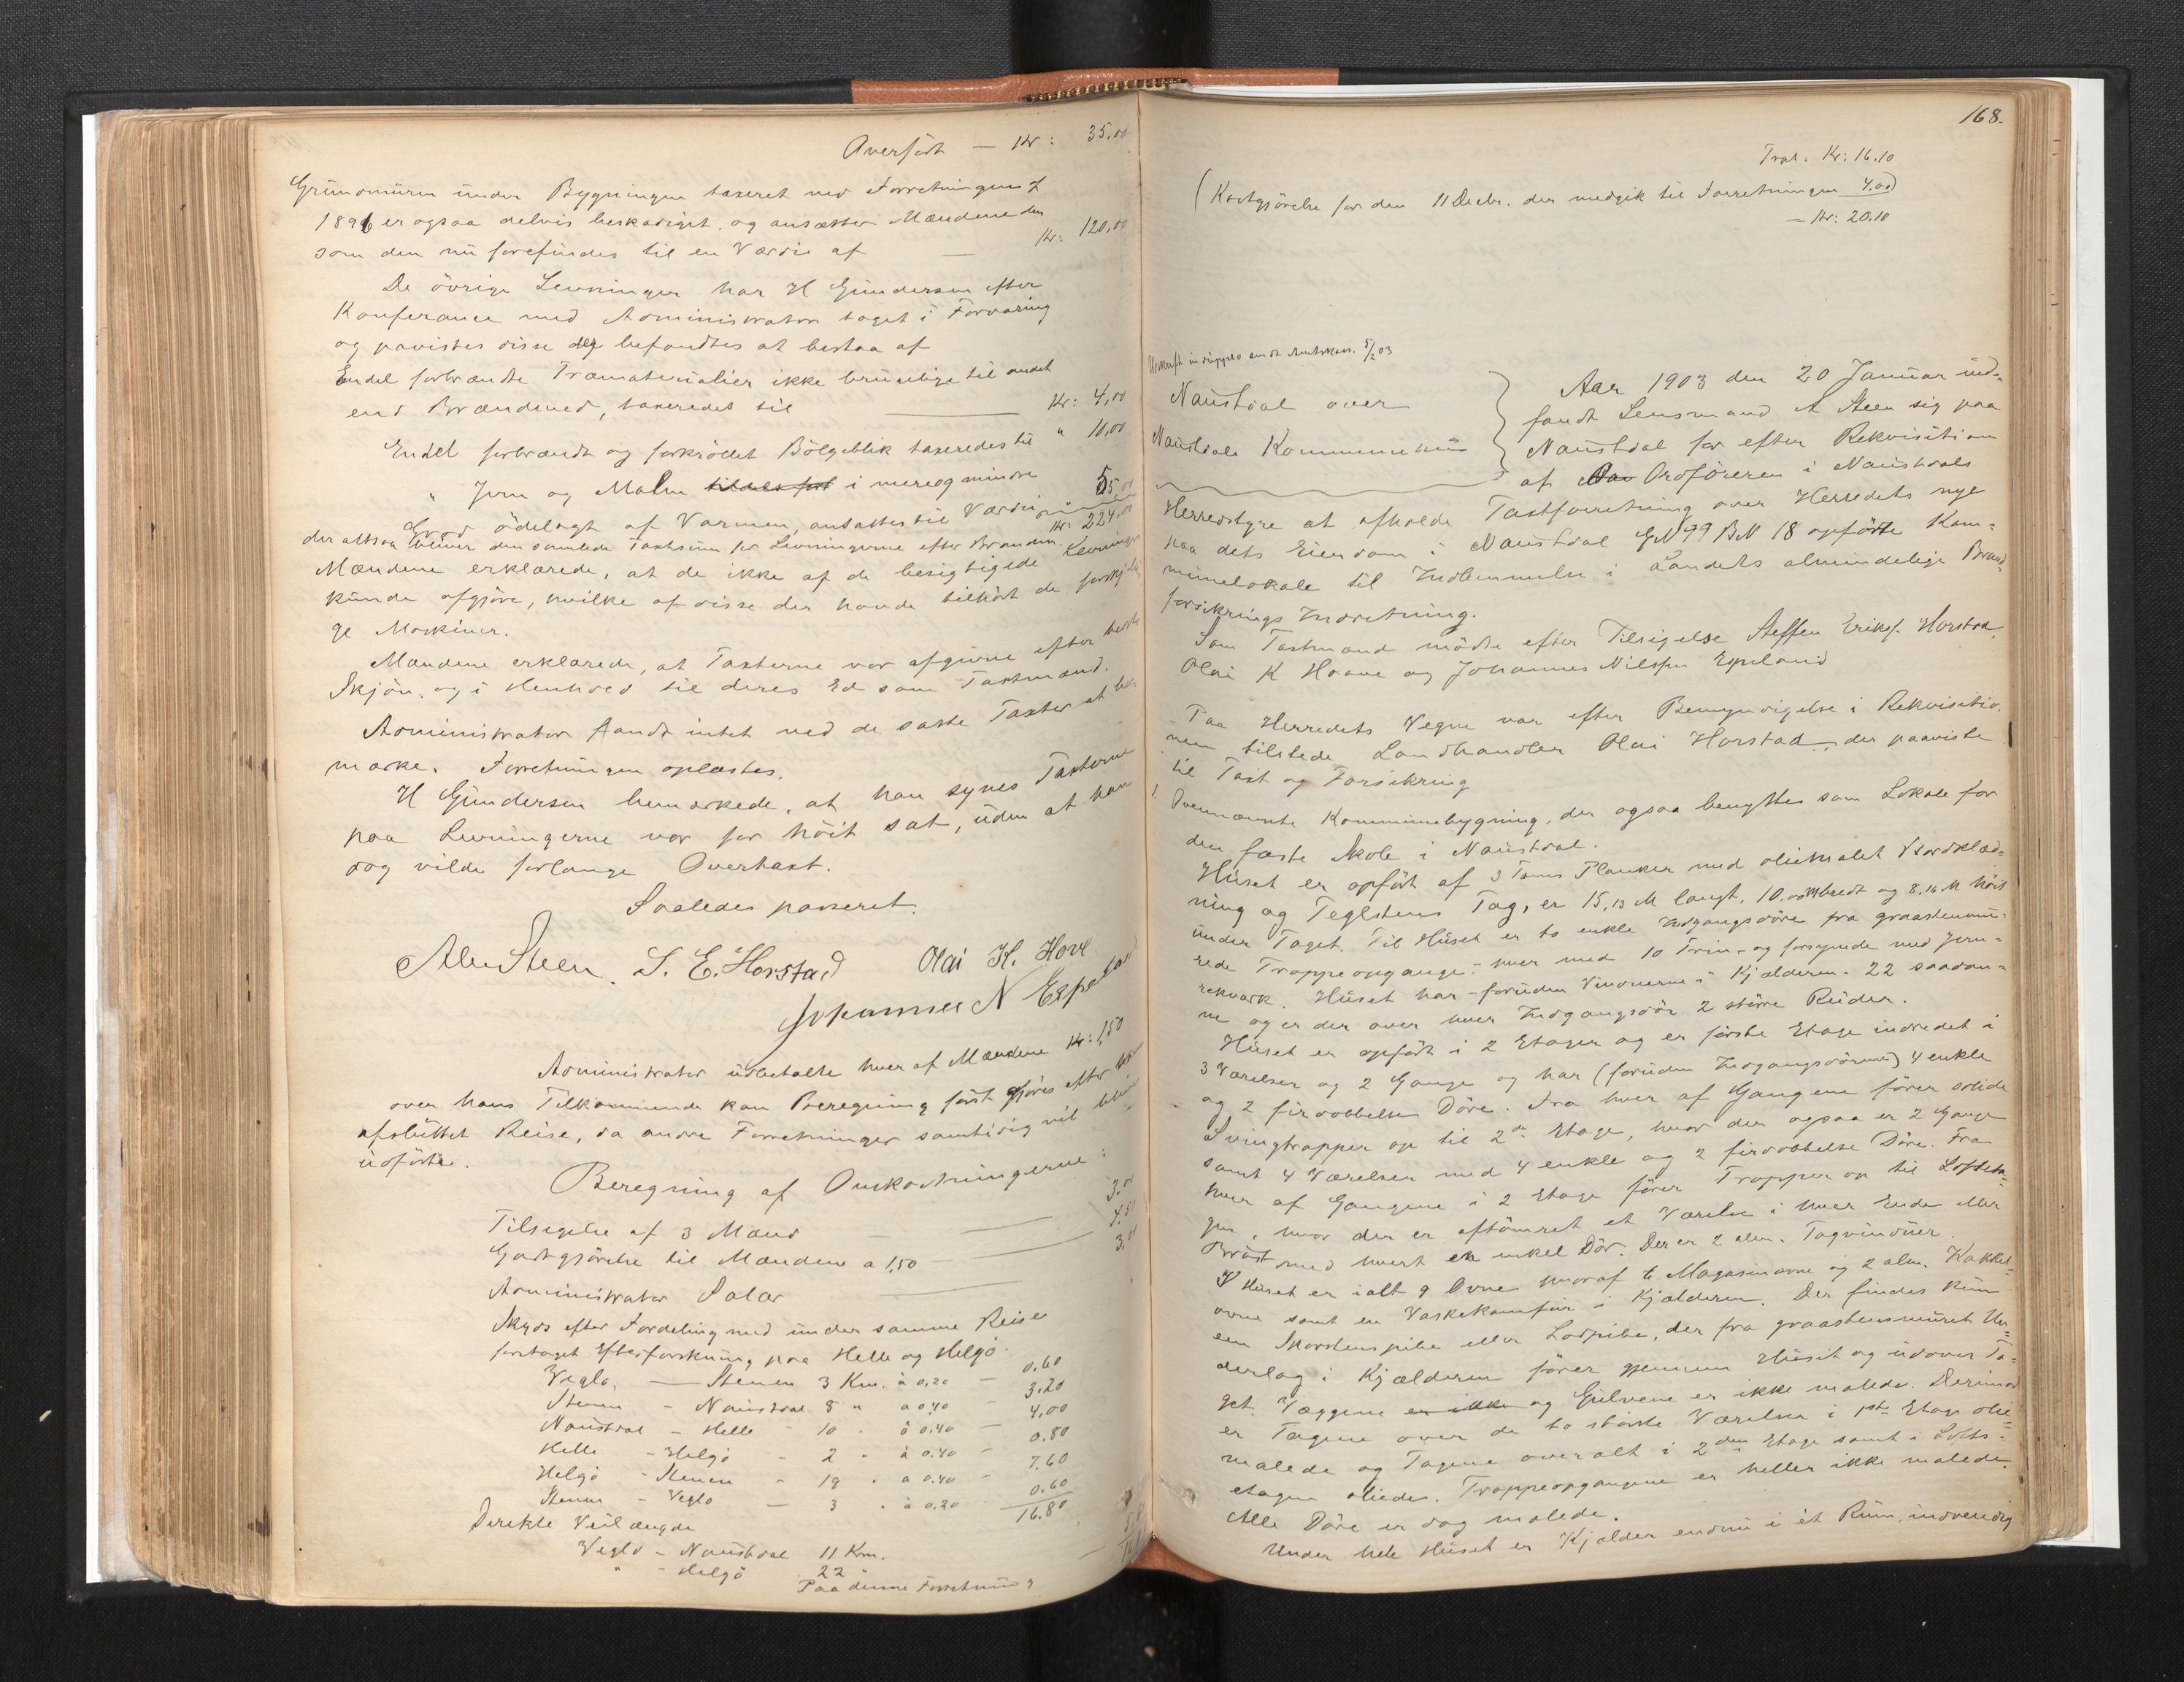 Overført — Kr: 35,00
Grundmuren under Bygningen taxeret ved Forretningen
1896 er ogsaa delvis beskadiget, og ansætter Mændene den
som den nu forefindes til en Værdi af — Kr: 120,00
De övrige Levninger har H Gundersen efter
Konferance med Administrator taget i Forvaring
og paavistes disse der befandtes at bestaa af
Endel forbrændte Træmaterialier ikke brugelige til andet
end Brændeved, taxeredes til — Kr: 4,00
Endel forbrændt og forkröllet Bölgeblik taxeredes til " 10,00
" Jern og Malm i mere og mindre
Grad ödelagt af Varmen, ansattes til Værdi 55,00
der altsaa bliver den samlede Taxtsum for Levningerne efter Branden. Kr: 224,00
Mændene erklærede, at de ikke af de besigtigede Levninger
kunde afgjöre, hvilke af disse der havde tilhört de forskjelli
ge Maskiner.
Mændene erklærede, at Taxterne var afgivne efter bedste
Skjön og i Henhold til deres Ed som Taxtmænd.
Administrator fandt intet ved de satte Taxter at be-
mærke. Forretningen oplæstes.
H Gundersen bemærkede, at han synes Taxterne
paa Levningerne var for höit sat, uden at han
dog vilde forlange Overtaxt.
Saaledes passeret.
Alex Steen. S. E. Horstad Olai K. Hove
Johannes N Espeland
Administrator udbetalte hver af Mændene Kr: 1,50
over hans Tilkommende kan Beregning först gjöres efter
afsluttet Reise, da andre Forretninger samtidig vil blive
udförte.
Beregning af Omkostningerne:
Tilsigelse af 3 Mænd — 3.00
Godtgjörelse til Mændene a 1,50 — 4.50
Administrator Salær — 3.00
Skyds efter Fordeling med under samme Reise
foretaget Efterforskning paa Helle og Helgö.
Veglo, — Stenen 3 Km. à 0,20 — 0.60
Stenen - Naustdal 8 " a 0,40 — 3,20
Naustdal - Helle - 10 " à 0.40 — 4,00
Helle - Helgö - 2 " à 0.40 — 0.80
Helgö - Stenen " 19 " a 0.40 — 7.60
Stenen - Veglo — 3 " à 0.20 — 0.60
16.80
Direkte Veilængde
Veglo - Naustdal 11 Km.
" - Helgö 22 "
Paa denne Forretning
168.
Trsl. Kr: 16.10
(Kostgjörelse for den 11 Decbr. der medgik til Forretningen 4.00)
— Kr: 20.10
Udskrift in duplo sendt Amtskass. 5/2 03
Naustdal over
Naustdals Kommunehus
Aar 1903 den 20 Januar ind-
fandt Lensmand A Steen sig paa
Naustdal for efter Rekvisition
af Ordföreren i Naustdals
Herredstyre at afholde Taxtforretning over Herredets nye
paa dets Eiendom i Naustdal GN 99 BN 18 opförte Kom-
munelokale til Indlemmelse i Landets almindelige Brand-
forsikrings Indretning.
Som Taxtmænd mödte efter Tilsigelse Steffen Eriks. Horstad,
Olai K Hovve og Johannes Nilssen Espeland
Paa Herredets Vegne var efter Bemyndigelse i Rekvisitio-
nen tilstede Landhandler Olai Horstad, der paaviste
til Taxt og Forsikring
1. Ovennævnte Kommunebygning, der ogsaa benyttes som Lokale for
den faste Skole i Naustdal.
Huset er opfört af 3 Toms Planker med oliemalet Bordklæd-
ning og Teglstens Tag, er 15,13 M langt, 10.00 M bredt og 8.16 M höit
under Taget. Til Huset er to enkle Indgangsdöre fra graastensmu-
rede Trappeopgange, hver med 10 Trin, og forsynede med Jern-
rekværk. Huset har - foruden Vinduerne i Kjælderen - 22 saadan-
ne og er der over hver Indgangsdör 2 större Ruder.
Huset er opfört i 2 Etager og er förste Etage indredet i
3 Værelser og 2 Gange og har (foruden Indgangsdörene) 4 enkle
og 2 firdobbelte Döre. Fra hver af Gangene förer solide
Svingtrapper op til 2den Etage, hvor der ogsaa er 2 Gange
samt 4 Værelser med 4 enkle og 2 firdobbelte Döre. Fra
hver af Gangene i 2 Etage förer Trapper op til Lofteta-
gen, hvor der er aftömret et Værelse i hver Ende eller
Bröst med hvert en enkel Dör. Der er 2 alm. Tagvinduer.
I Huset er ialt 9 Ovne hvoraf 6 Magasinovne og 2 alm. Kakkel-
ovne samt en Vaskekomfur i Kjælderen. Der findes kun
een Skorstenspibe eller Lodpibe, der fra graastensmuret Un-
derlag i Kjælderen förer gjennem Huset og udover Ta-
get. Væggene er ikke og Gulvene er ikke malede. Derimod
er Tagene over de to störste Værelser i 1ste Etage olie-
malede og Tagene overalt i 2den Etage samt i Lofts-
etagen oliede. Trappeopgangene er heller ikke malede.
Alle Döre er dog malede.
Under hele Huset er Kjælder endnu i et Rum, indvendig